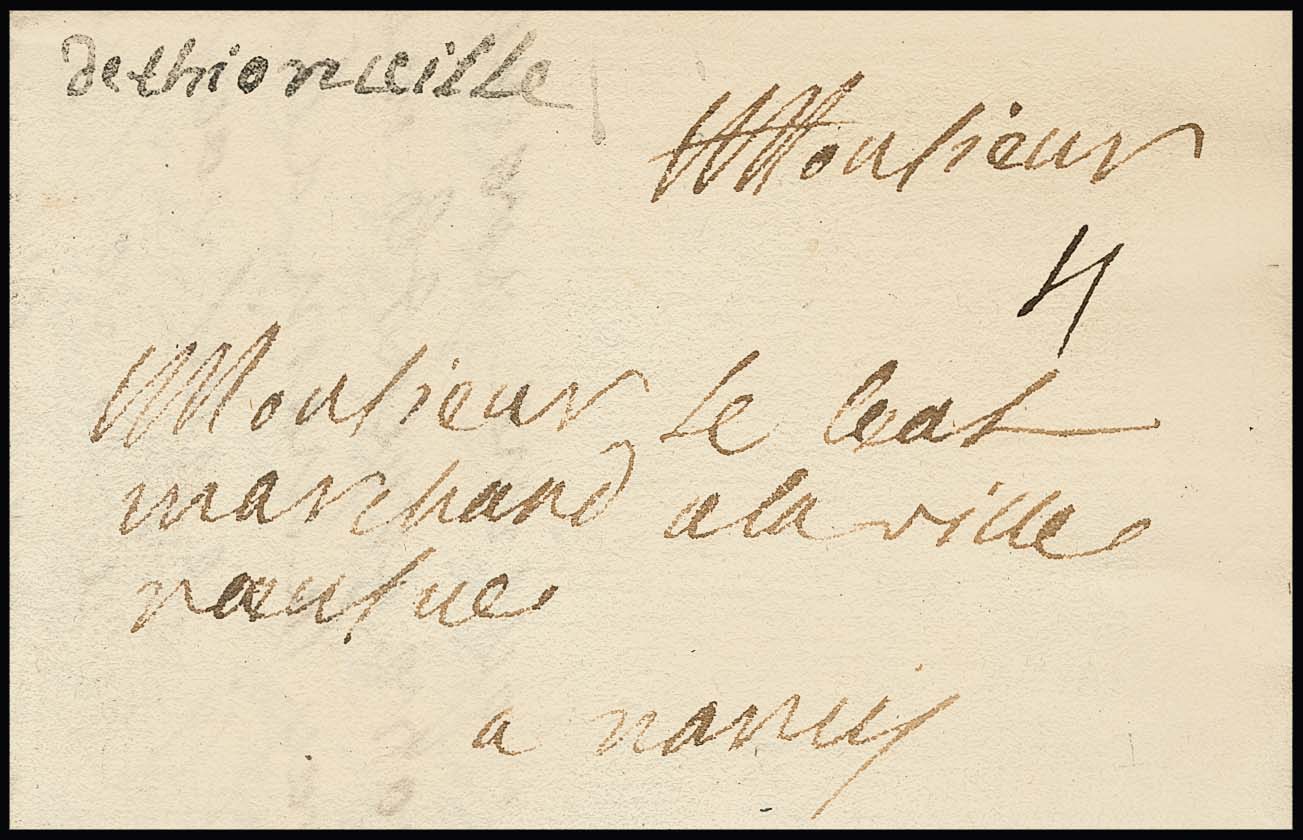 dethionville
Monsieur
4
Monsieur Le
marchand a la ville
naeufue
a nancij